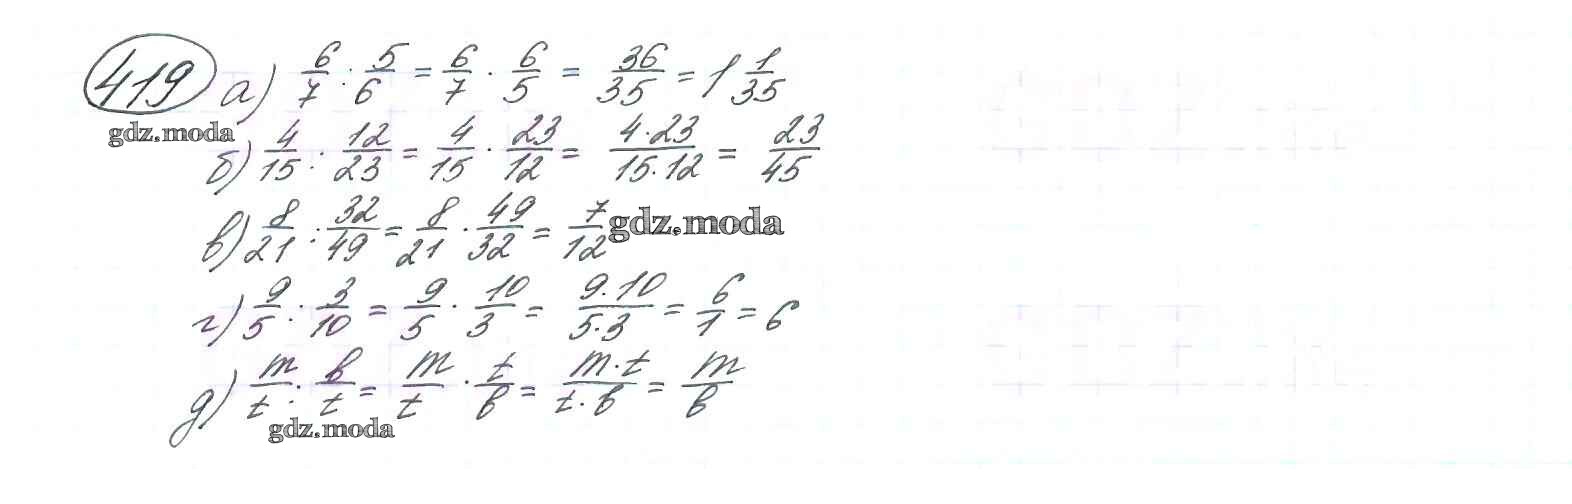 419 а) 6/7 : 5/6 = 6/7 · 6/5 = 36/35 = 1 1/35
gdz.moda
б) 4/15 : 12/23 = 4/15 · 23/12 = 4·23/15·12 = 23/45
в) 8/21 : 32/49 = 8/21 · 49/32 = 7/12 gdz.moda
г) 9/5 : 3/10 = 9/5 · 10/3 = 9·10/5·3 = 6/1 = 6
д) m/t : b/t = m/t · t/b = m·t/t·b = m/b
gdz.moda